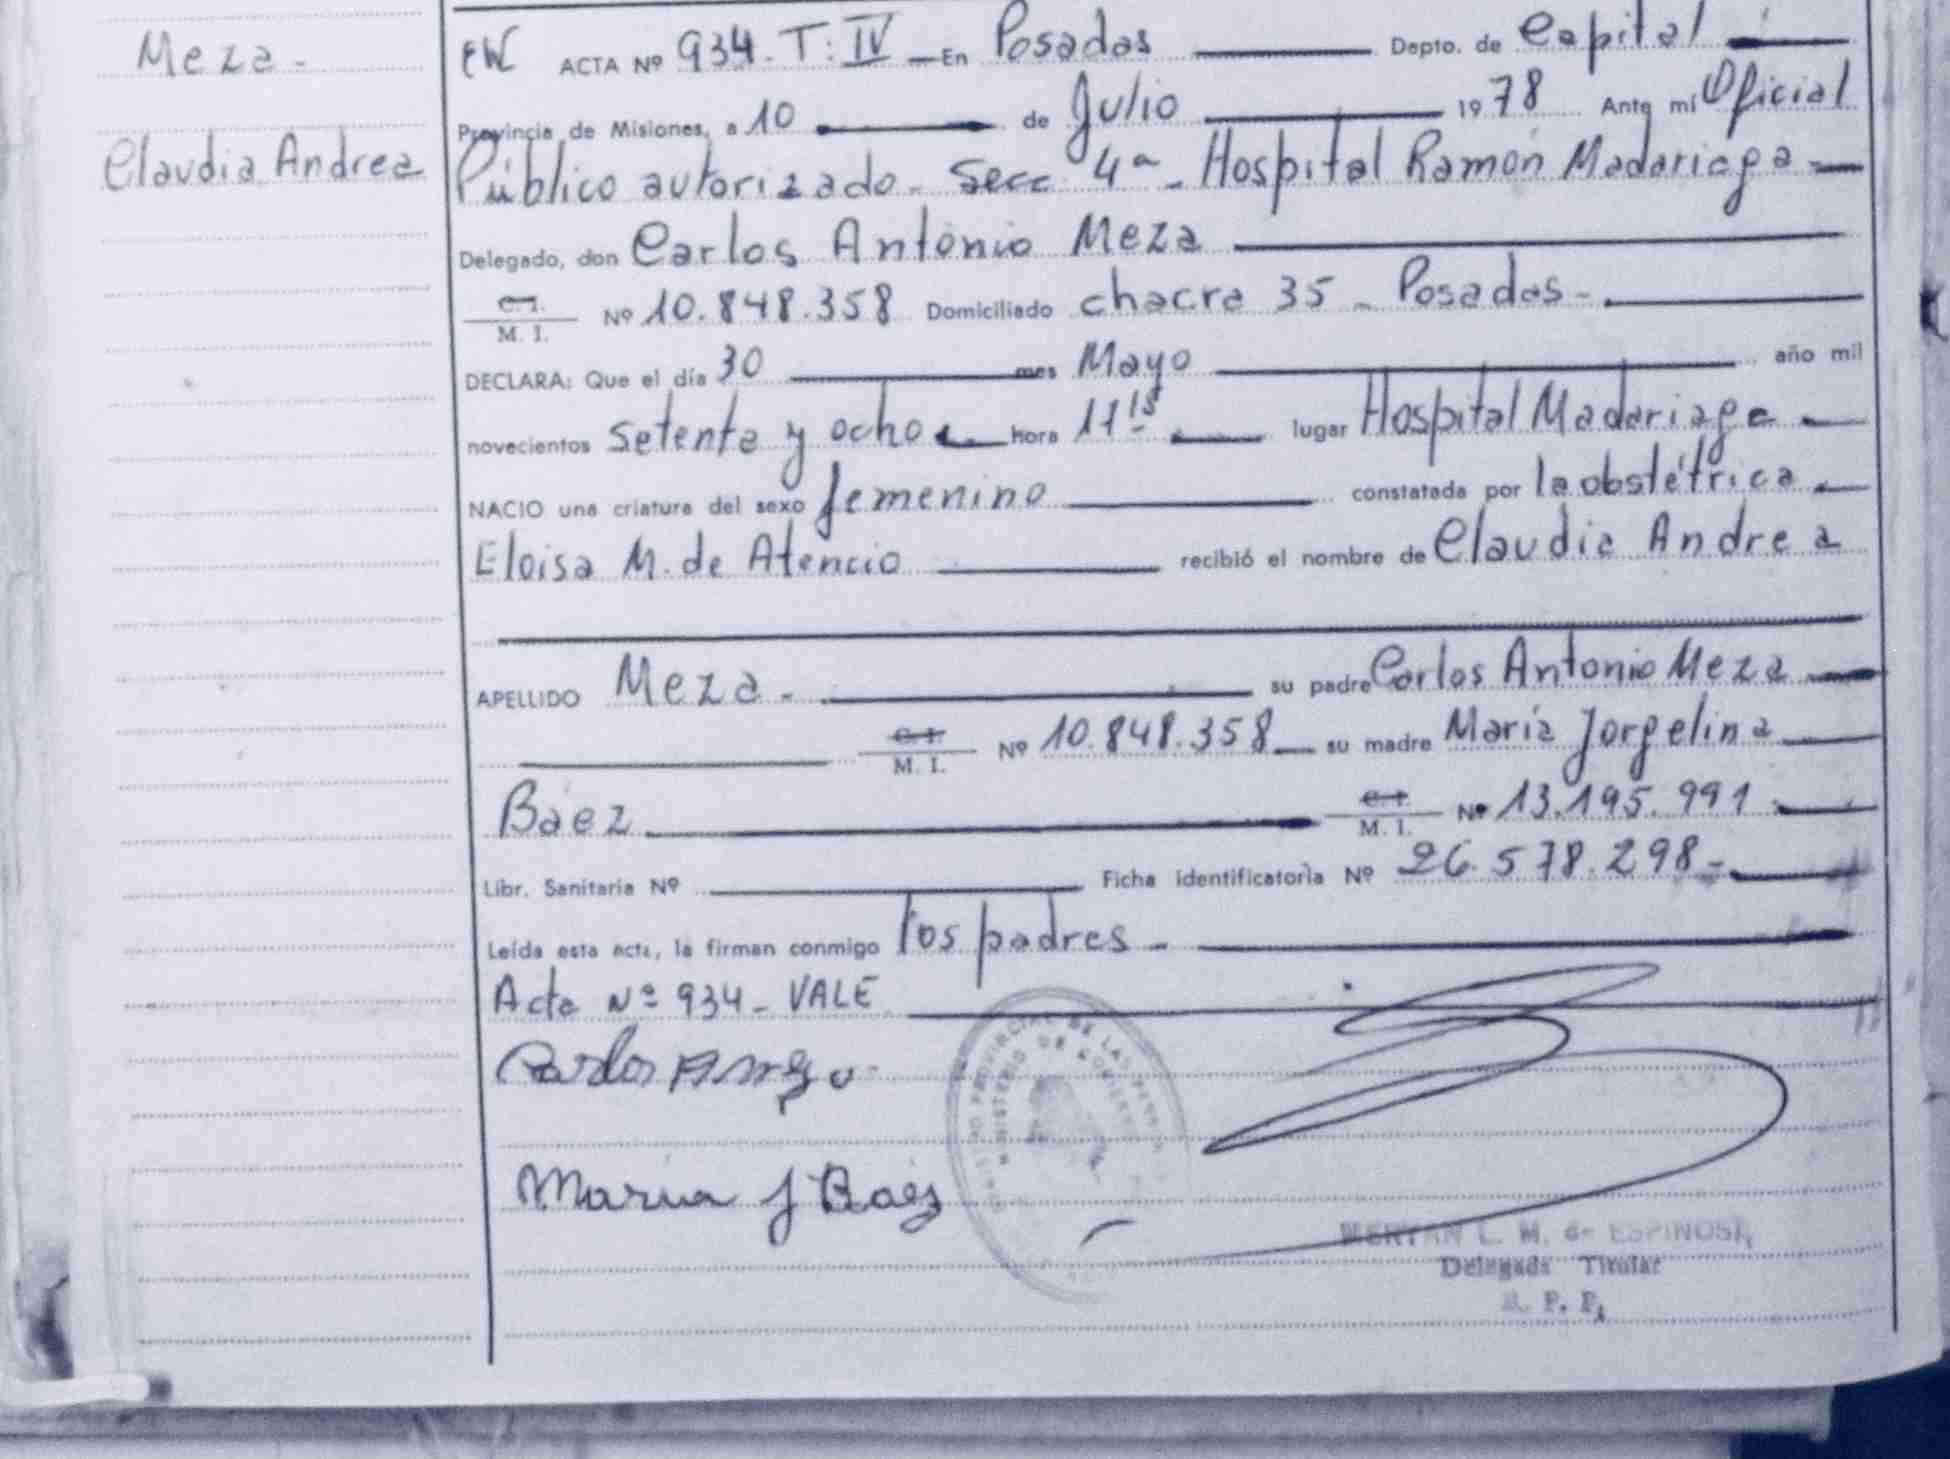 Meza -
Claudia Andrea
ACTA Nº 934. T: IV En Posadas Depto. de Capital
Provincia de Misiones, a 10 de Julio 1978 Ante mí Oficial
Público autorizado - Secc 4ª - Hospital Ramón Madariaga
Delegado, don Carlos Antonio Meza
C. I.
M. I. Nº 10.848.358 Domiciliado chacra 35 - Posadas -
DECLARA: Que el día 30 mes Mayo año mil
novecientos setenta y ocho hora 11 15 lugar Hospital Madariaga
NACIO una criatura del sexo femenino constatada por la obstétrica
Eloisa M. de Atencio recibió el nombre de Claudia Andrea
APELLIDO Meza - su padre Carlos Antonio Meza
C. I.
M. I. Nº 10.848.358 su madre María Jorgelina
Báez C. I.
M. I. Nº 13.195.991
Libr. Sanitaria Nº Ficha identificatoria Nº 26.578.298-
Leída esta acta, la firman conmigo los padres -
Acta Nº 934 - VALE
Carlos A
Maria J Baez
PROVINCIAL DE LAS
MINISTERIO DE GOBIERNO
L. M. de ESPINOSA
Delegada Titular
R. P. P.